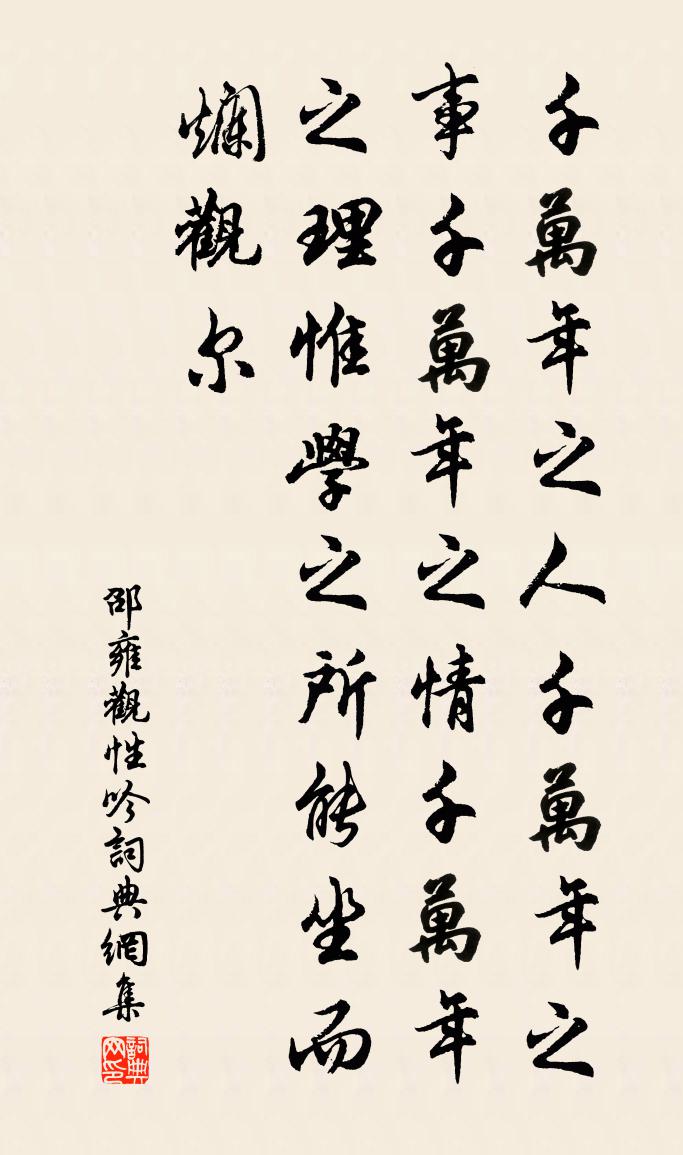 千萬年之人千萬年之
事千萬年之情千萬年
之理惟學之所能坐而
爛觀尔
邵雍觀性吟詞典網集
詞典网印